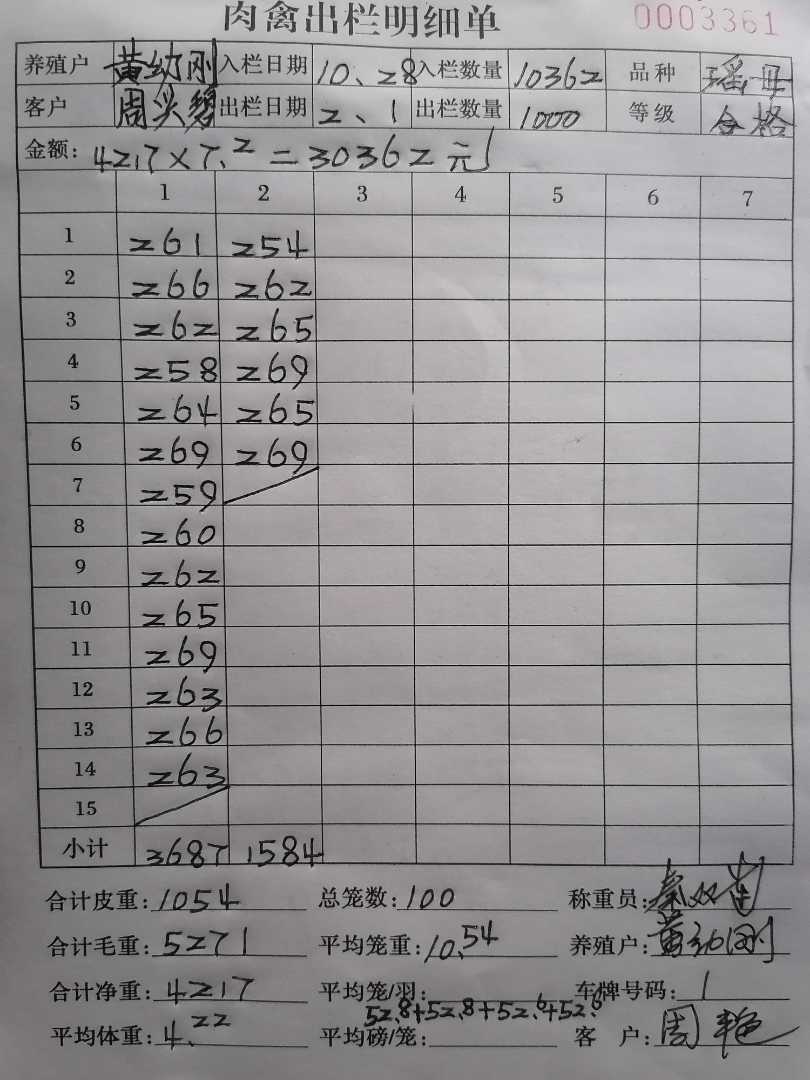 肉禽出栏明细单 0003361
养殖户 黄幼刚 入栏日期 10、28 入栏数量 10362 品种 瑶母
客户 出栏日期 2、1 出栏数量 1000 等级 合格
金额: 4217×7.2=30362元
1 2 3 4 5 6 7
1 261 254
2 266 262
3 262 265
4 258 269
5 264 265
6 269 269
7 259
8 260
9 262
10 265
11 269
12 263
13 266
14 263
15
小计 3687 1584
合计皮重: 1054 总笼数: 100 称重员:
合计毛重: 5271 平均笼重: 10.54 养殖户: 黄幼刚
合计净重: 4217 平均笼/羽: 车牌号码: 1
52.8+52.8+52.6+52.6
平均体重: 4.22 平均磅/笼: 客 户: 周